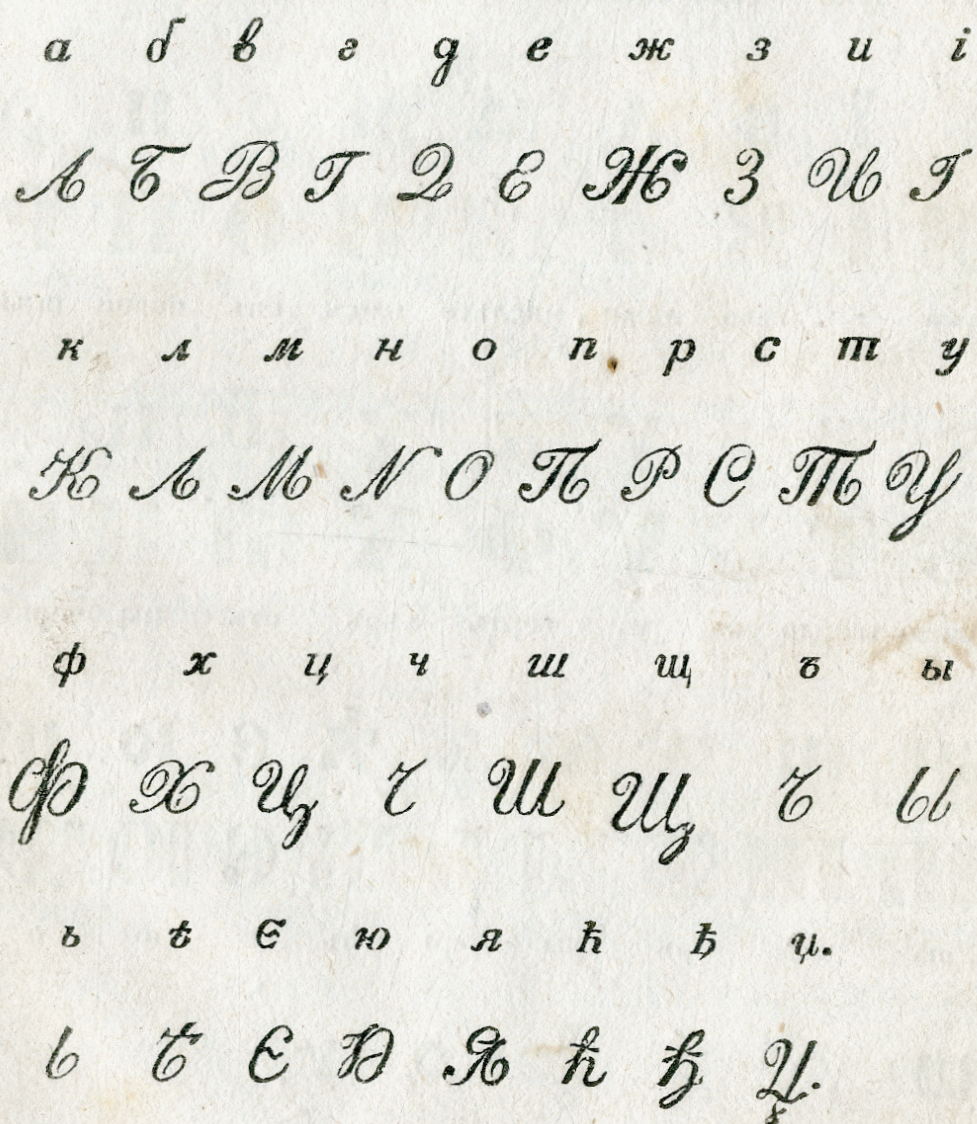 а б в г д е ж з и і
А Б В Г Д Е Ж З И І
к л м н о п р с т у
К Л М N О П Р С Т У
ф х ц ч ш щ ъ ы
Ф Х Ц Ч Ш Щ Ъ Ы
ь ѣ є ю я ћ ђ џ.
Ь Ѣ Є Ю Я Ћ Ђ Џ.